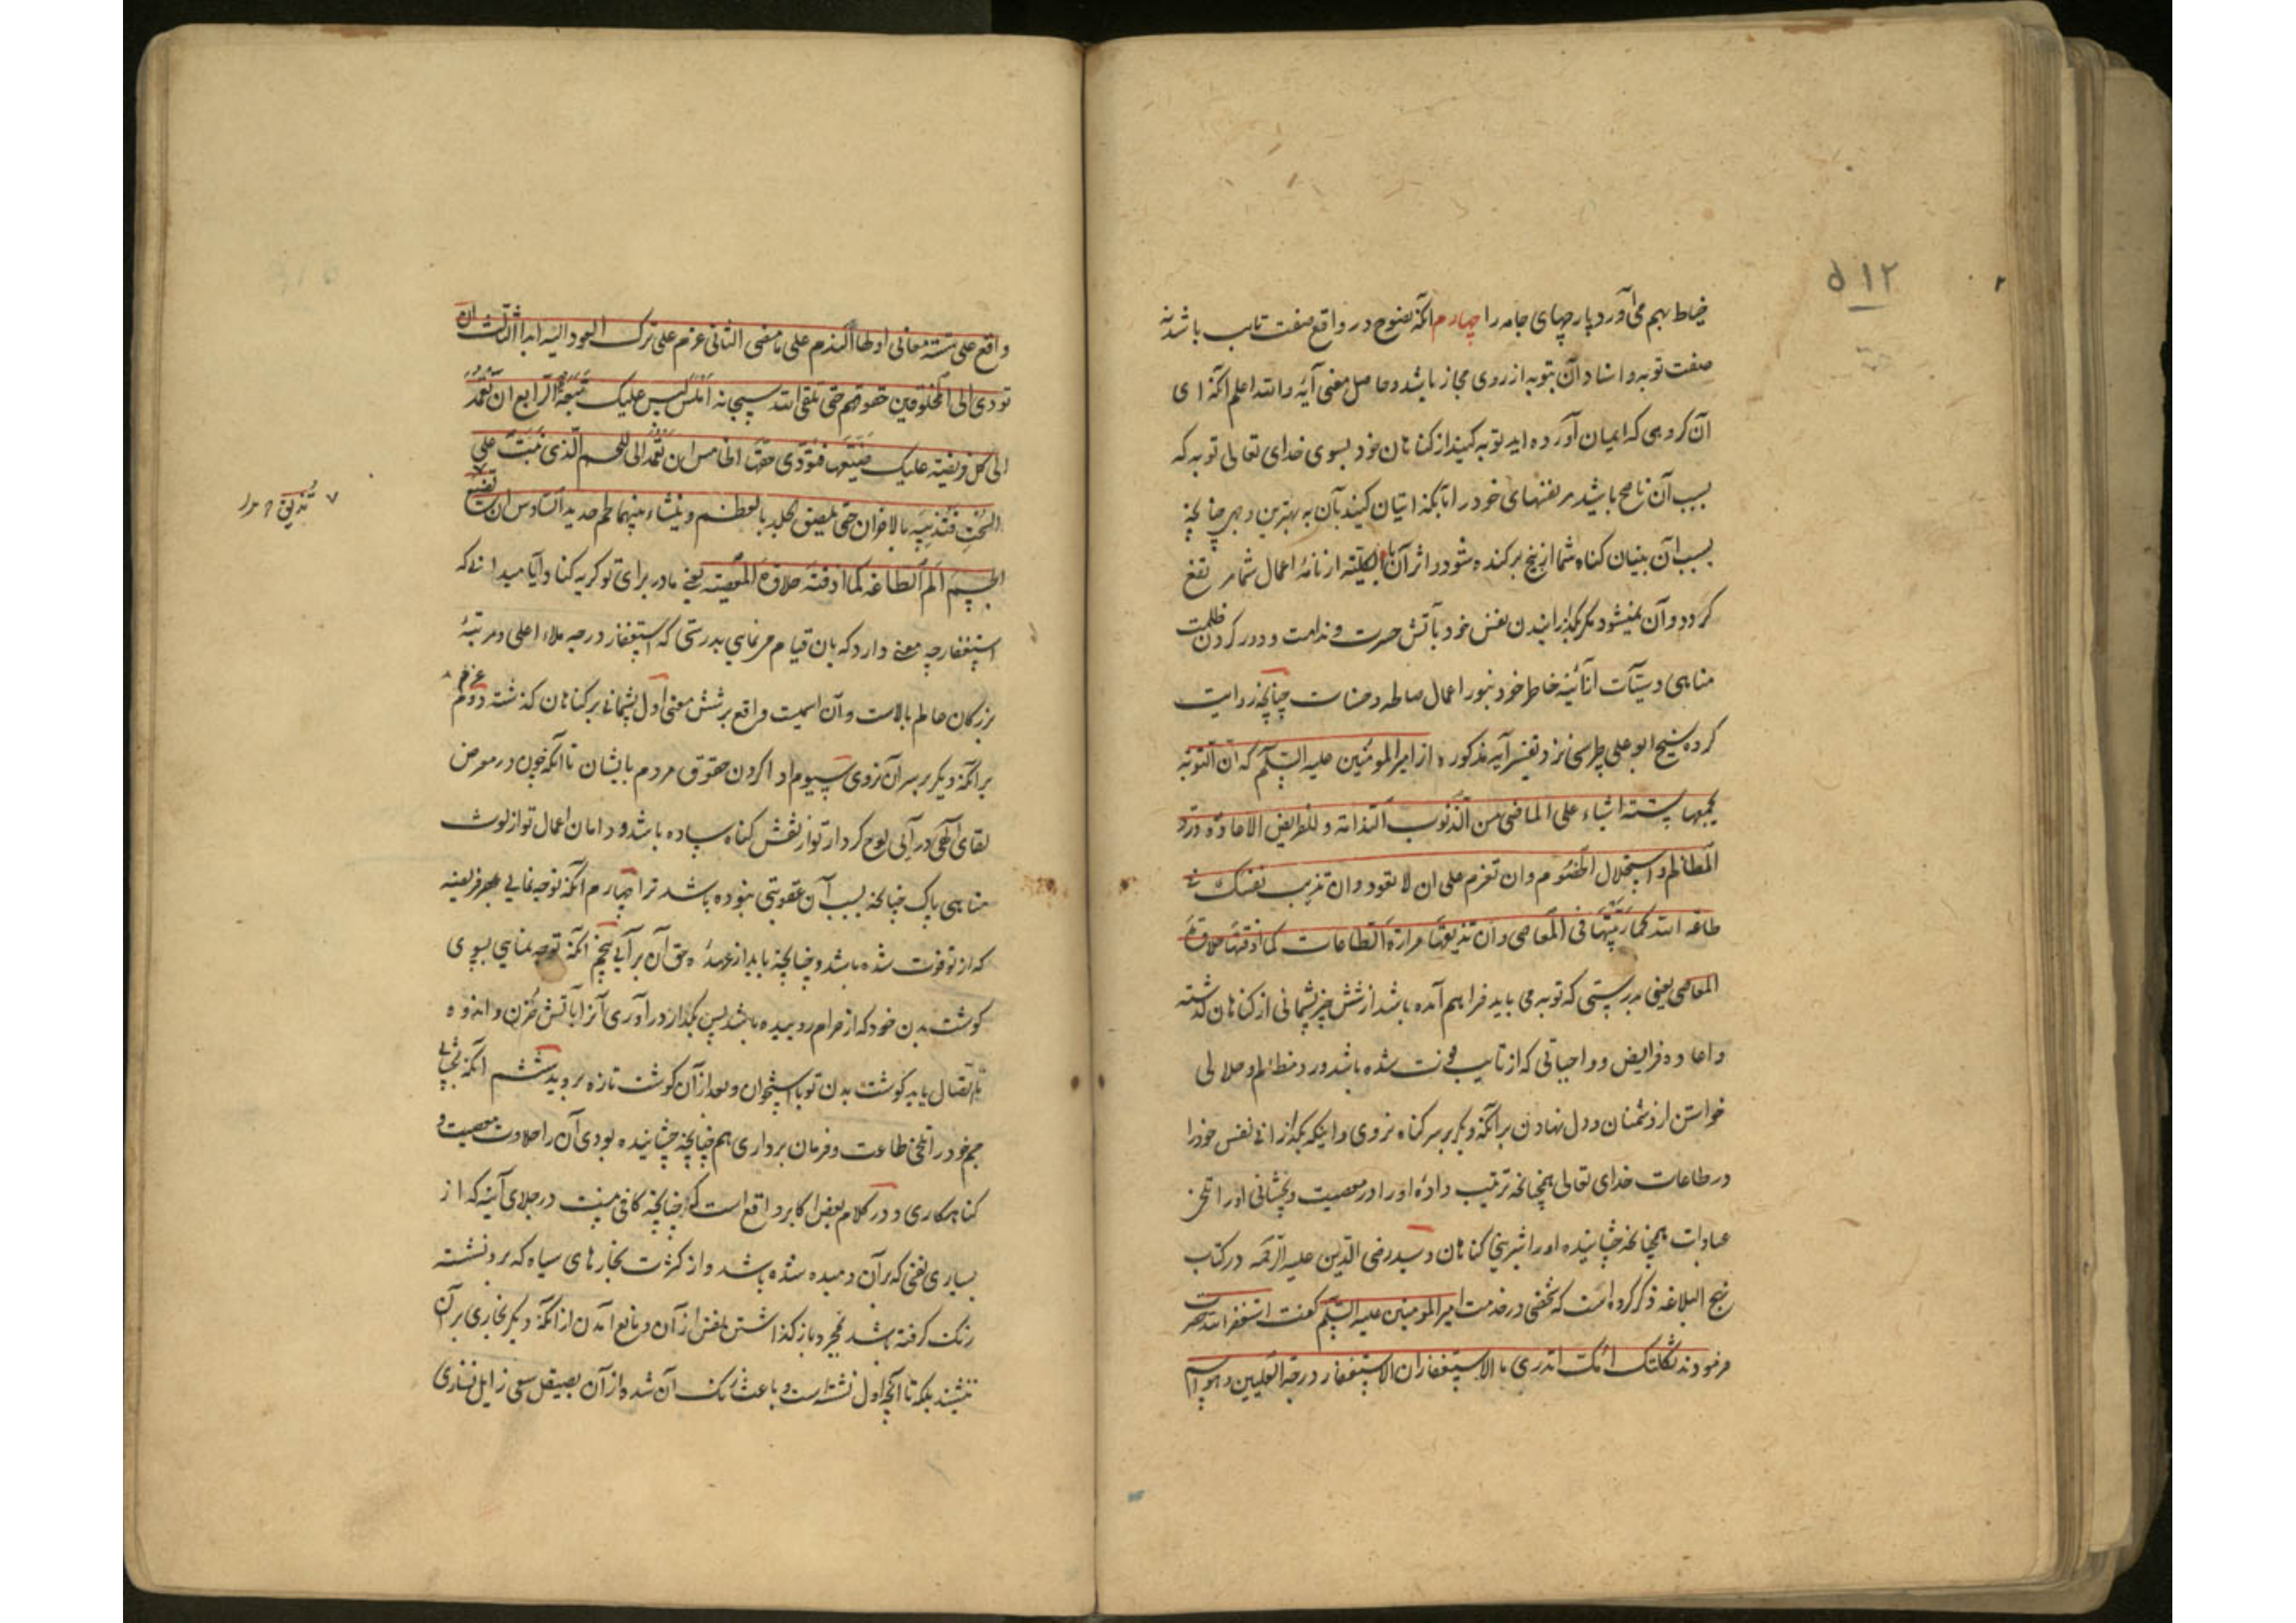 ۵۱۲
خیاط بهم می‌آورد پارچهای جامه را چهارم آنکه نصوح در واقع صفت تایب باشد نه
صفت توبه و اسناد آن بتوبه از روی مجاز باشد و حاصل معنی آیه والله اعلم آنکه ای
آن کروهی که ایمان آورده اید توبه کنید از کناهان خود بسوی خدای تعالی توبه که
بسبب آن ناصح باشید مر نفسهای خود را بآنکه اتیان کنید بآن به بهترین وجهی چنانچه
بسبب آن بنیان کناه شما از بیخ برکنده شود و اثر آن بالکلیة از نامهٔ اعمال شما مرتفع
کردد و آن نمیشود مکر بکدرانیدن نفس خود بآتش حسرت و ندامت و دور کردن ظلمت
مناهی و سیّآت از آئینه خاطر خود بنور اعمال صالحه و حسنات چنانچه روایت
کرده شیخ ابو علی طبرسی نزد تفسیر آیه مذکوره از امیر المومنین علیه السّلم که ان التوبة
یجمعها ستة اشیاء علی الماضی من الذنوب الندامة و للفرایض الاعادة و رد
المظالم و استحلال الخصوم و ان تعزم علی ان لا تعود و ان تذیب نفسک فی
طاعة الله کما ربّیتها فی المعاصی و ان تذیقها مرارة الطاعات کما اذقتها حلاوة
المعاصی یعنی بدرستی که توبه می باید فراهم آمده باشد از شش چیز پشمانی از کناهان کذشته
و اعاده فرایض و واجباتی که از تایب فوت شده باشد و رد مظالم و حلالی
خواستن از دشمنان و دل نهادن بر آنکه دیکر بر سر کناه نروی و اینکه بکدازانی نفس خود را
در طاعات خدای تعالی همچنانچه ترتیب دادهٔ او را در معصیت و بچشانی او را تلخی
عبادات همچنانچه چشانیده او را شیرینی کناهان و سید رضی الدین علیه الرحمه در کتاب
نهج البلاغه ذکر کرده است که شخصی در خدمت امیر المومنین علیه السّلم کفت استغفر الله حضرت
فرمودند ثکلتک امّک اتدری ما الاستغفار ان الاستغفار درجة العلیین و هو اسم
واقع علی ستة معانی اولها الندم علی ما مضی الثانی عزم علی ترک العود الیه ابدا الثالث ان
تودی الی المخلوقین حقوقهم حتی تلقی الله سبحانه املس لیس علیک تبعة الرابع ان تعمد
الی کل فریضة علیک ضیّعتها فتودی حقها الخامس ان تعمد الی اللحم الذی نبت علی
السحت فتذیبه بالاحزان حتی یلصق الجلد بالعظم و ینشاء بینهما لحم جدید السادس ان تذیق
الجسم الم الطاعة کما اذقته حلاوة المعصیة یعنی مادر برای تو کریه کناد آیا میدانی که
استغفار چه معنی دارد که بان قیام می نمایی بدرستی که استغفار درجه ملاء اعلی و مرتبهٔ
بزرکان عالم بالاست و آن اسمیت واقع بر شش معنی اول پشمانی بر کناهان کذشته دوم عزم
بر آنکه دیکر بر سر آن نروی سیوم ادا کردن حقوق مردم بایشان تا آنکه چون در معرض
لقای الهی در آیی لوح کردار تو از نقش کناه ساده باشد و دامان اعمال تو از لوث
مناهی پاک چنانچه بسبب آن عقوبتی نبوده باشد ترا چهارم آنکه توجه نمایی بهر فریضه
که از تو فوت شده باشد و چنانچه باید از عهدهٔ حق آن بر آیی پنجم آنکه توجه نمایی بسوی
کوشت بدن خود که از حرام روییده باشد پس بکداز در آوری آنرا بآتش حزن و اندوه
تا اتصال یابد کوشت بدن تو باستخوان و بعد از آن کوشت تازه بروید ششم آنکه بچشانی
جسم خود را تلخی طاعت و فرمان برداری همچنانچه چشانیده بودی آن را حلاوت معصیت و
کناهکاری و در کلام بعض اکابر واقع است که چنانچه کافی نیست در جلای آینه که از
بسیاری نفسی که بر آن دمیده شده باشد و از کثرت بخارهای سیاه که برو نشسته
زنک کرفته باشد مجرد باز کذاشتن نفس از آن و مانع آمدن از آنکه دیکر بخاری بر آن
ننشیند بلکه تا آنچه اول نشسته است و باعث زنک آن شده از آن بصیقل سعی زایل نسازی